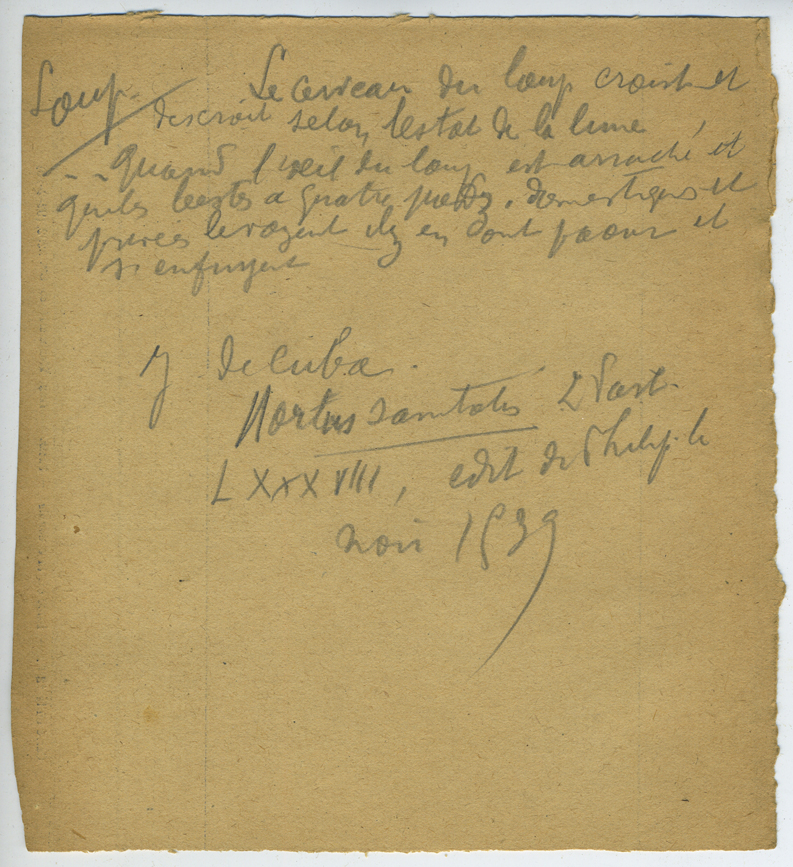 Loup. Le cerveau du loup croist et
descroit selon lestat de la lune
-- quand l'oeil du loup est arraché et
que les bestes a quatre piedz, domestiques et
privees le voyent ilz en ont paour et
s'enfuyent
J de Cuba.
Hortus sanitatis 2 Part.
LXXXVIII, edit de Philip. le
noir 1539